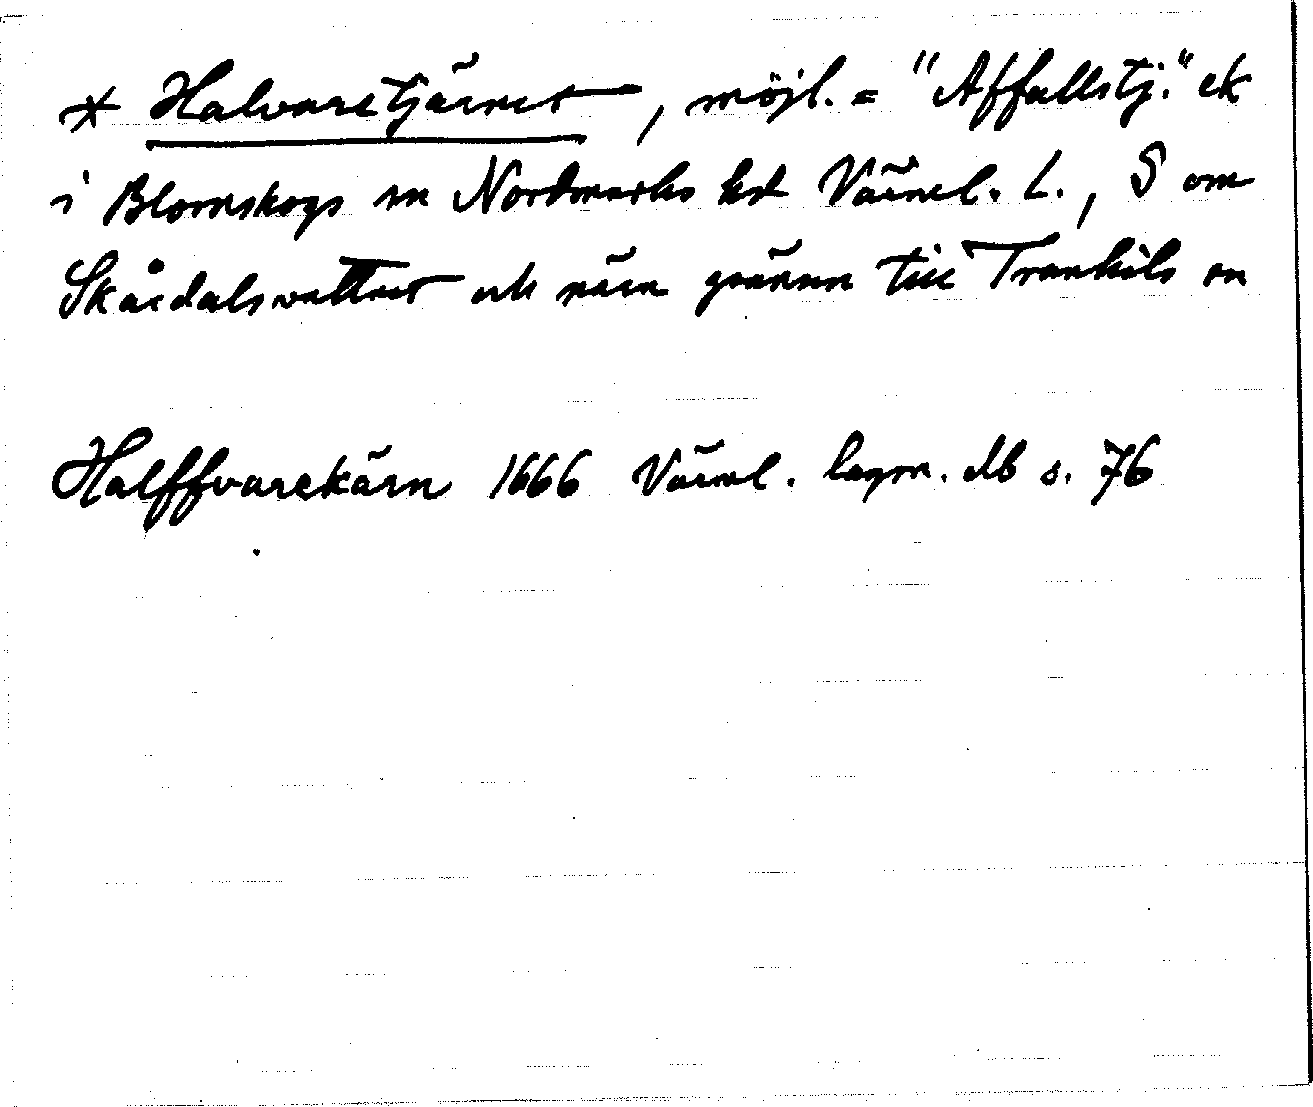 * Halvaretjärnet, möjl. = "Affallstj." ek
i Blomskogs sn Nordmarks hd Värml. l., S om
Skårdalsvattnet och nära gränsen till Trankils sn
Halffvarekärn 1666 Värml. lagm. db s. 76